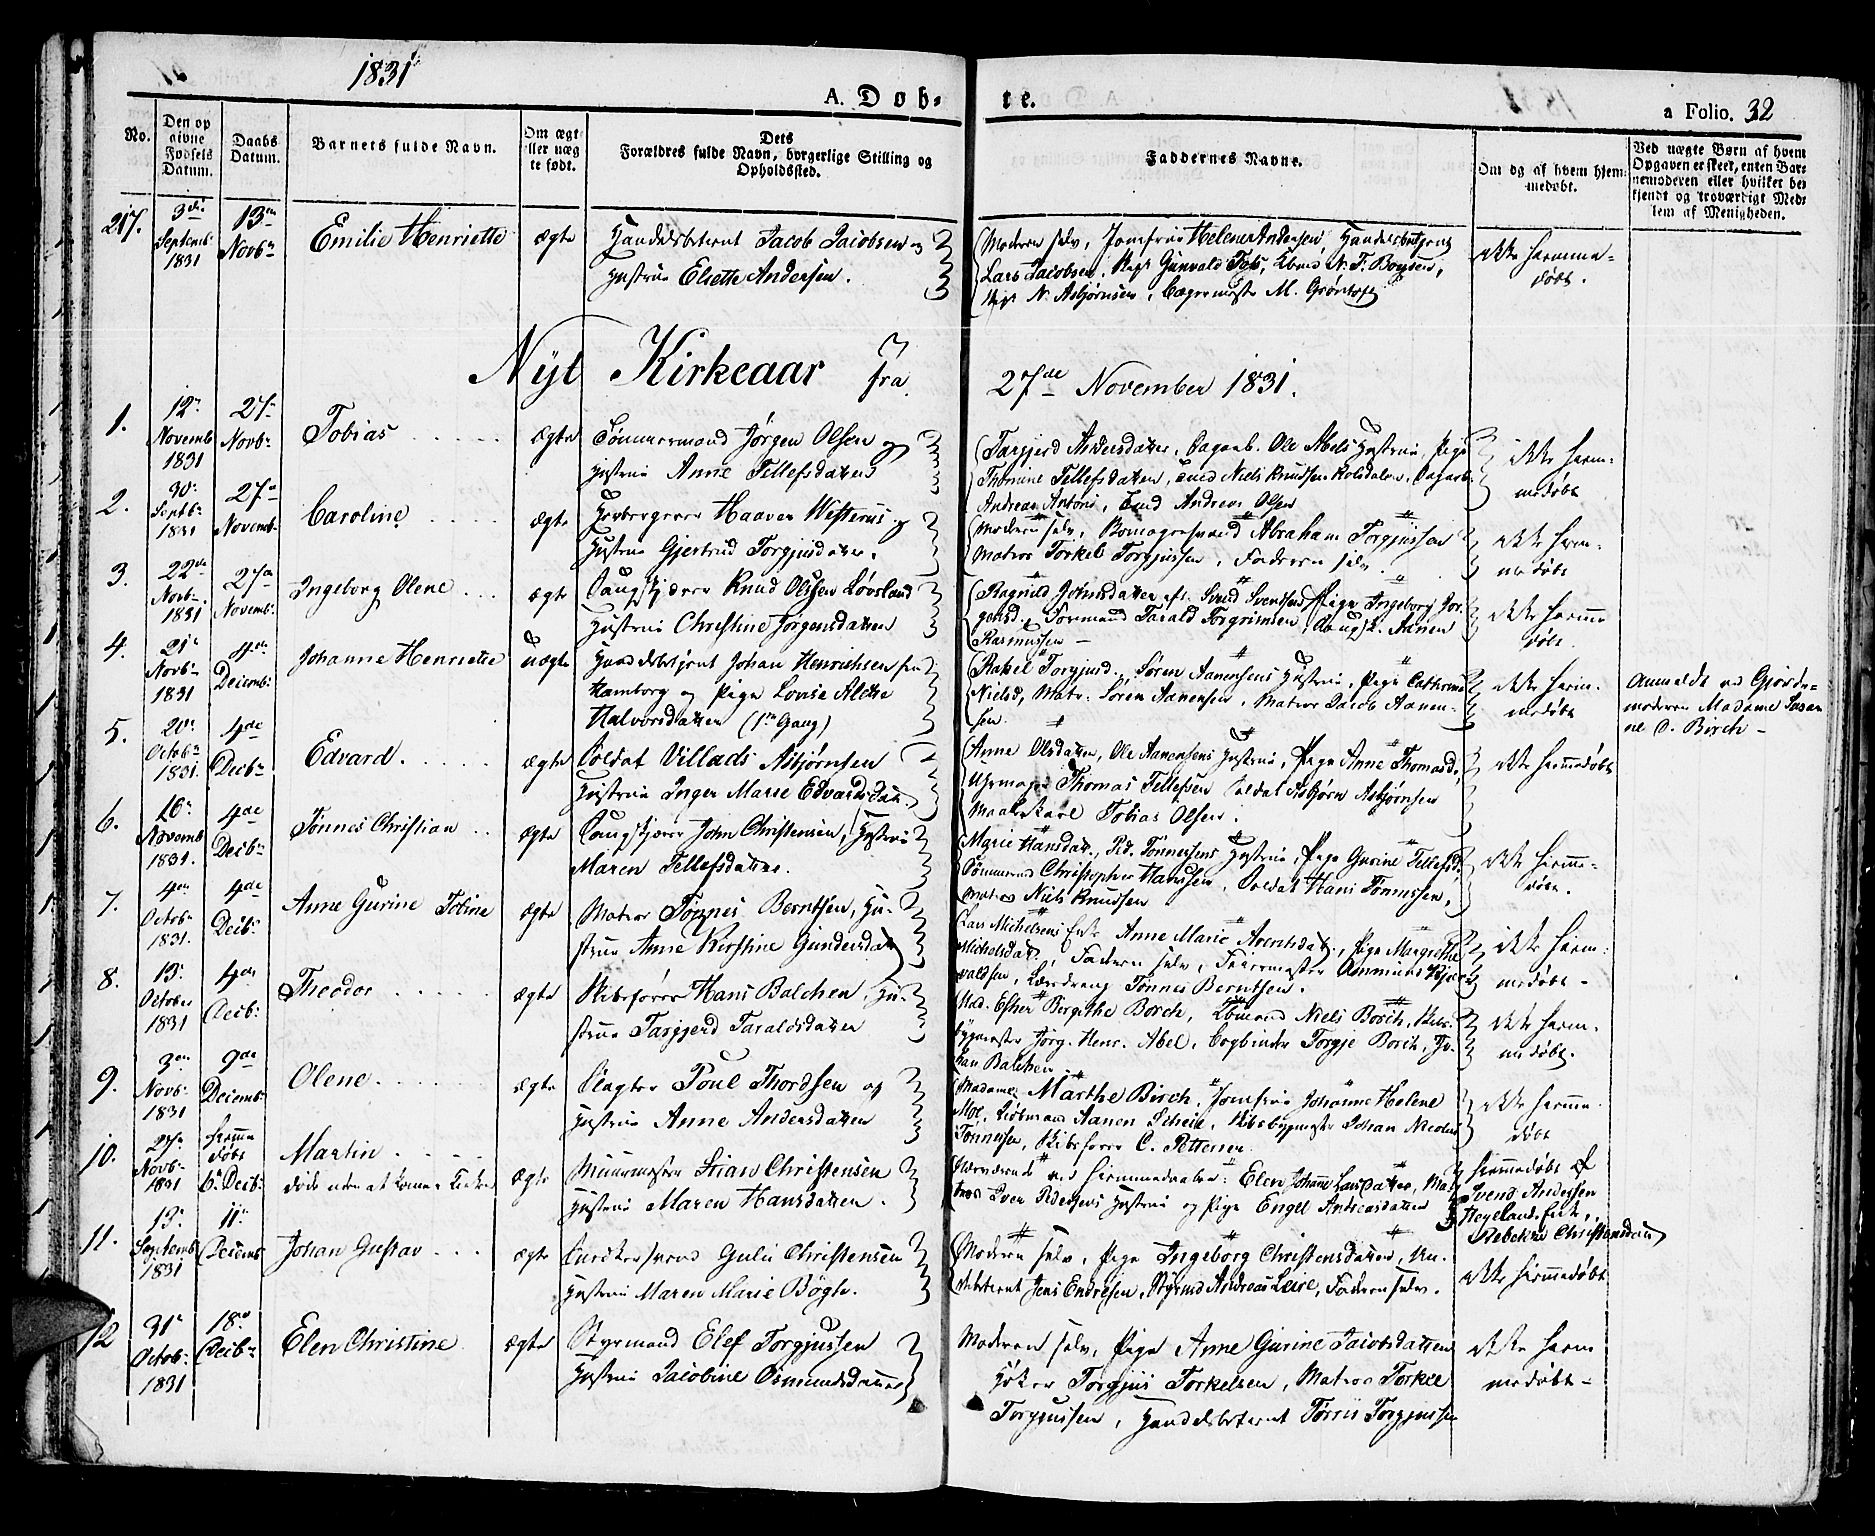 1831
A. Døb-
te.
a Folio. 32
No.
Den op
givne
Fødsels
Datum.
Daabs
Datum.
Barnets fulde Navn.
Om ægt
eller uæg
te født.
Dets
Forældres fulde Navn, borgerlige Stilling og
Opholdssted.
Faddernes Navne.
Om og af hvem hjem-
medøbt.
Ved uægte Børn af hvem
Opgaven er skeet, enten Bar-
nemoderen eller hvilket be
kjendt og troværdigt Med-
lem af Menigheden.
217.
3die
Septemb:
1831
13de
Novbr
Emilie Henriette
ægte
Handelsbetient Jacob Jacobsen og
Hustrue Elsette Andersen.
Moderen selv, Jomfrue Helene Andersen, Handelsbetjent
Lars Jacobsen, Gunvald N. F. Boysen,
N. Asbjørnsen, M.
ikke hiemme-
døbt.
Nyt Kirkeaar fra
27de November 1831.
1.
12te
Novemb
1831
27de
Novbr
Tobias
ægte
Tømmermand Jørgen Olsen og
Hustrue Anne Tellefsdatter
Targjerd Andersdatter, Ole Abels Hustrue, Pige
Thomine Tellefsdatter, Niels Knudsen
Andreas Antoni, Andreas Olsen
ikke hiem-
medøbt
2.
30te
Septbr
1831
27de
Novemb:
Caroline
ægte
Haaver og
Hustrue Gjertrud Torgjusdatter.
Moderen selv, Abraham Torgjussen
Matros Torkel Torgjussen, Faderen selv.
ikke hiem-
medøbt
3.
22de
Novbr
1831
27de
Novemb:
Ingeborg Olene
ægte
Saugskjærer Knud Olssen Løvsland
Hustrue Christine Jørgensdatter
Ragnild Johnsdatter Svend Svendsen, Pige Ingeborg Jør-
gensd., Formand Tarald Torgrimsen, Saugsk. Aanen
Rasmussen
ikke hiemme
døbt.
4.
21de
Novbr
1831
4de
Decemb:
Johanne Henriette
uægte
Handelsbetjent Johan Henrichsen fra
Hamborg og Pige Lovise
Halvorsdatter (1ste Gang)
Rakel Torgjusd., Søren Aanensens Hustrue, Pige Cathrine
Nielsd, Matr. Søren Aanensen, Matros Jacob Aanen-
sen.
ikke hiem-
medøbt
Anmeldt ved Gjorde-
moderen Madame Susan
ne S. Birch
5.
20de
Octobr
1831.
4de
Decbr
Edvard
ægte
Soldat Villads Asbjørnsen
Hustrue Inger Marie Edvardsdat.
Anne Olsdatter, Ole Aanensens Hustrue, Pige Anne Thomasd.
Uhrmager Thomas Tellefsen Soldat Asbjørn Asbjørnsen
Tobias Olsen.
ikke hiemmedøbt
6.
16de
Novemb
1831.
4de
Decbr
Tønnes Christian
ægte
Saugskjærer John Christensen, Hustrue
Maren Tellefsdatter.
Marie Hansdat., Ped. Tønnesens Hustrue, Pige Gurine Tellefsd.
Tømmermd Christopher Hanssen, Soldat Hans Tønnessen,
Matros Niels Knudsen
ikke hiemme-
døbt.
7.
4de
Octob:
1831.
4de
Decbr
Anne Gurine Tobine
ægte
Matros Tønnes Berntsen, Hu-
strue Anne Kirstine Gundersdat
Lars Michelsens Enke Anne Marie, Pige Margrethe
Michelsdat., Faderen selv, Feiermester Ommund
valdsen, Læredreng Tønnes Berntsen.
ikke hiem-
medøbt
8.
13de
October
1831
4de
Decb:
Theodor
ægte
Skibsfører Hans Balchen, Hu-
strue Targjerd Taraldsdatter
Mad. Esther Bergithe Borch, Kbmand Niels Borch, Skibs-
bygmester Jørg. Henr. Abel, Bogbinder Torgje Borch, Jo-
han Balchen.
ikke hiem-
medøbt.
9.
3die
Novb:
1831
9de
Decemb:
Olene
ægte
Slagter Poul Thordsen og
Hustrue Anne Andersdatter
Madame Marthe Birch, Jomfrue Johanne Helene
Moe, Kiøbmand Aanon Scheie, Skibsbygmester Johan Nicolai
Tønnesen, Skibsfører C. Pettersen
ikke hiemme-
døbt
10.
27de
Novb:
1831
hiemme
døbt
6te Decb:
Martin
døde uden at komme i Kirken
ægte
Muurmester Stian Christensen
Hustrue Maren Hansdatter.
Nærværende ved Hiemmedaaben: Elen Johanne Larsdatter, Ma-
tros Iver Pedersens Hustrue og Pige Engel Andreasdatter
hiemmedøbt af
Svend Andersen
Hegelands Enke,
Rebekka Christiansdatter
11.
13de
Septemb
1831
11te
Decemb
Johan Gustav
ægte
Gulii Christensen
Hustrue Maren Marie Bøgh.
Moderen selv, Pige Ingeborg Christensdatter, Un-
Jens Endresen, Styrmd Andreas Leire, Faderen selv.
ikke hiemmedøbt
12
31te
Octob:
1831
18de
Decbr
Elen Christine
ægte
Styrmand Elef Torgjussen
Hustrue Jacobine Osmundsdatter
Moderen selv, Pige Anne Gurine Jacobsdatter
Høker Torgjus Torkelsen, Matros Torkel
Torgjussen, Handelsbetient Tørris Torgjussen
ikke hiem
medøbt